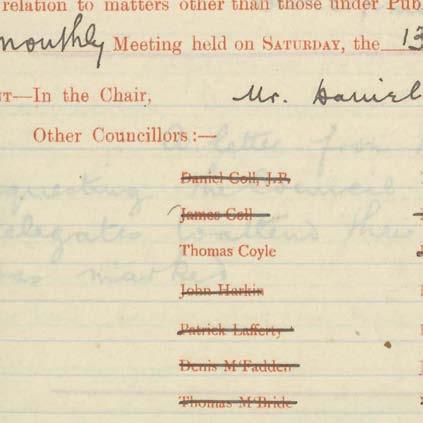 relation to matters other than those under Pub
monthly Meeting held on SATURDAY, the 13
NT—In the Chair, Mr. Daniel
Other Councillors:—
A letter from
Daniel Coll, J.P.
requesting Council
James Coll
delegates to attend the
Thomas Coyle
was marked
John Harkin
Patrick Lafferty
Denis M'Fadden
Thomas M'Bride